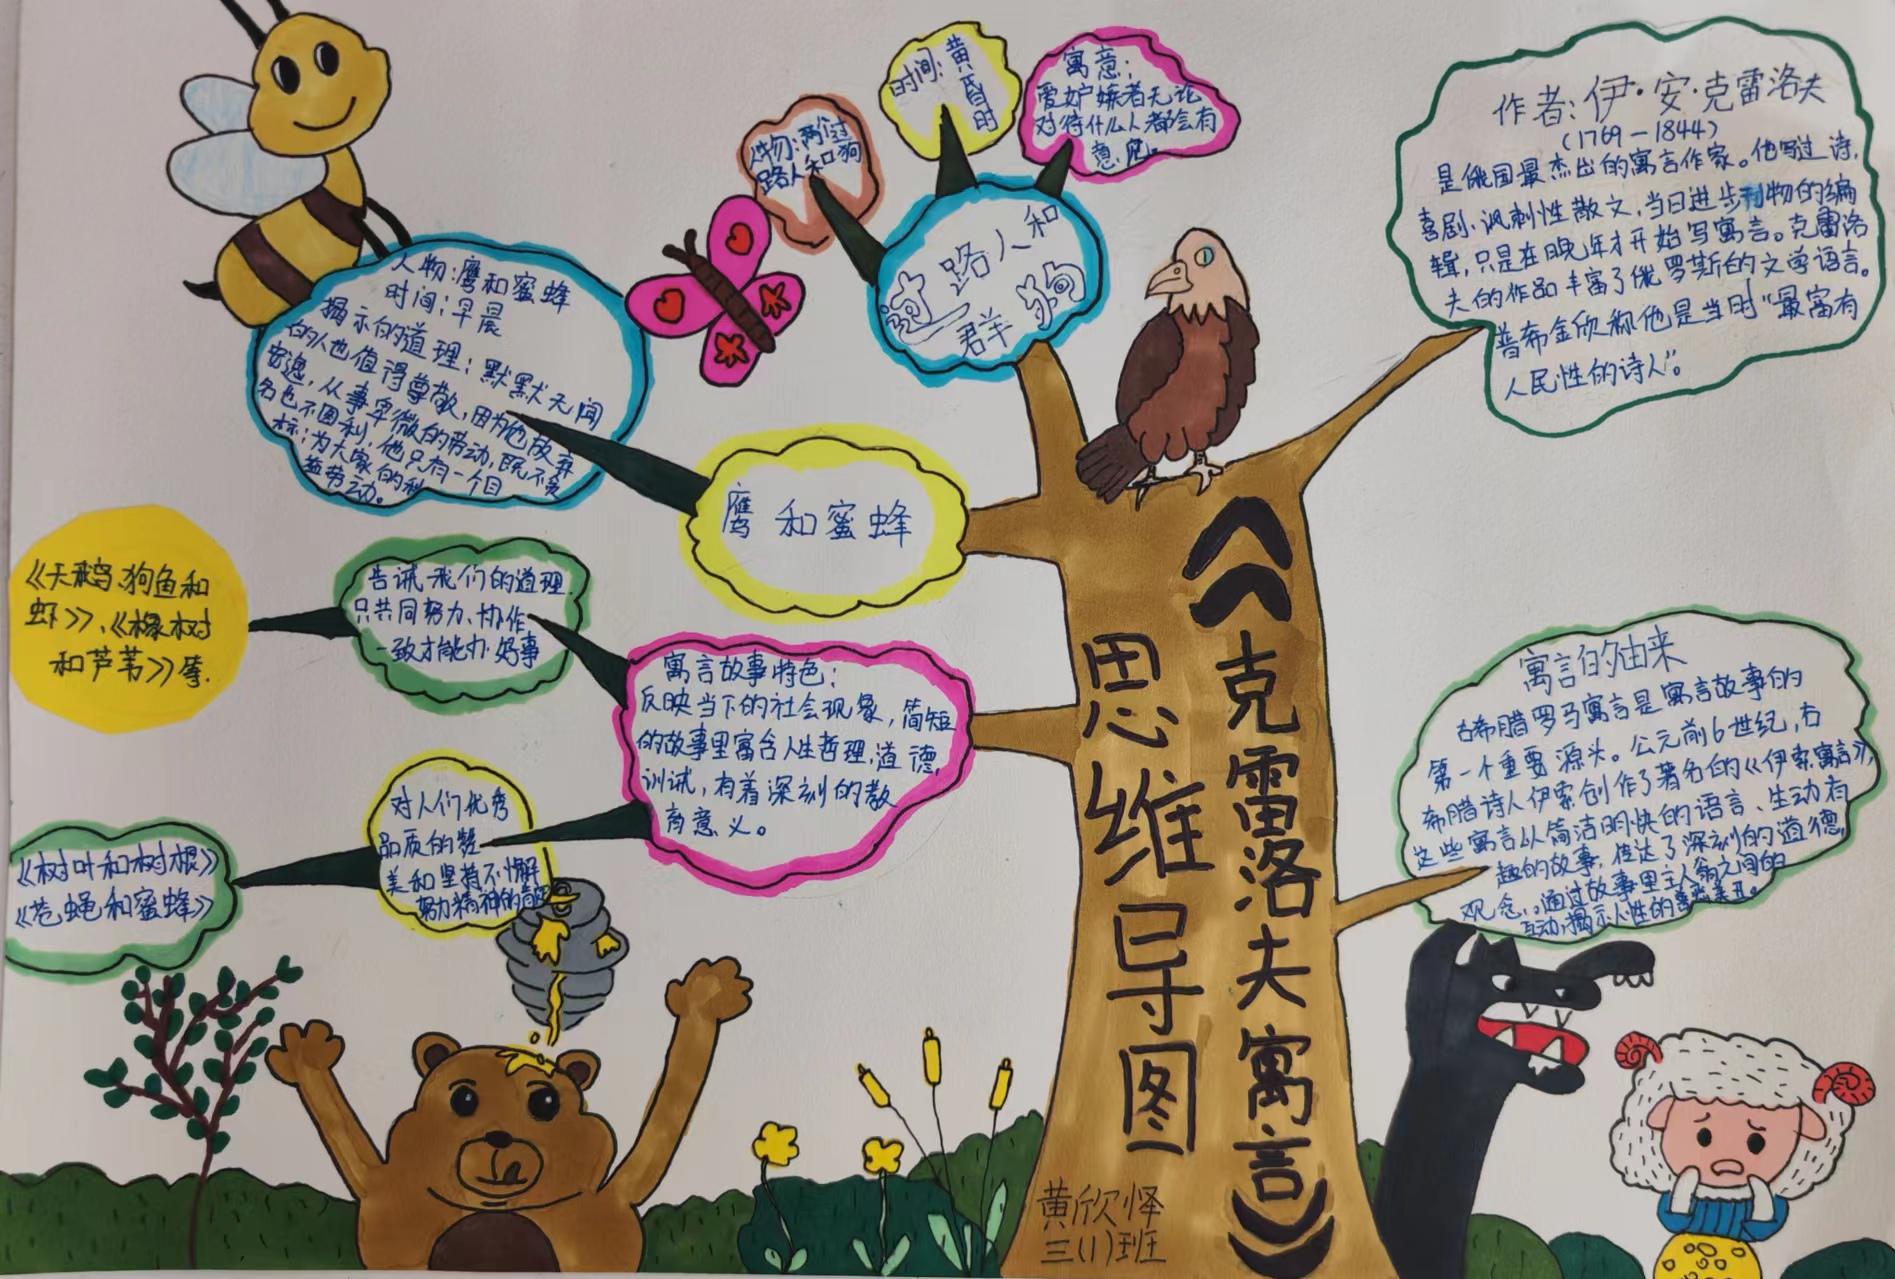 《克雷洛夫寓言》
思维导图
黄欣怿
三(1)班
作者:伊·安·克雷洛夫
(1769-1844)
是俄国最杰出的寓言作家。他写过诗,
喜剧、讽刺性散文,当日进步刊物的编
辑,只是在晚年才开始写寓言。克雷洛
夫的作品丰富了俄罗斯的文学语言。
普希金欣称他是当时“最富有
人民性的诗人”。
寓言的由来
古希腊罗马寓言是寓言故事的
第一个重要源头。公元前6世纪,古
希腊诗人伊索创作了著名的《伊索寓言》,
这些寓言以简洁明快的语言、生动有
趣的故事,传达了深刻的道德
观念。通过故事里主人翁之间的
互动,揭示人性的善恶美丑。
过路人和
一群狗
人物:两个过
路人和狗
时间:黄
昏时
寓意:
爱妒嫉者无论
对待什么人都会有
意见。
鹰和蜜蜂
人物:鹰和蜜蜂
时间:早晨
揭示的道理:默默无闻
的人也值得尊敬,因为他放弃
安逸,从事卑微的劳动,既不贪
名也不图利;他只有一个目
标:为大家的利
益劳动。
寓言故事特色:
反映当下的社会现象,简短
的故事里寓含人生哲理,道德,
训诫,有着深刻的教
育意义。
告诫我们的道理
只共同努力、协作
一致才能办好事
《天鹅、狗鱼和
虾》、《橡树
和芦苇》等.
对人们优秀
品质的赞
美和坚持不懈
努力精神的
《树叶和树根》
《苍蝇和蜜蜂》